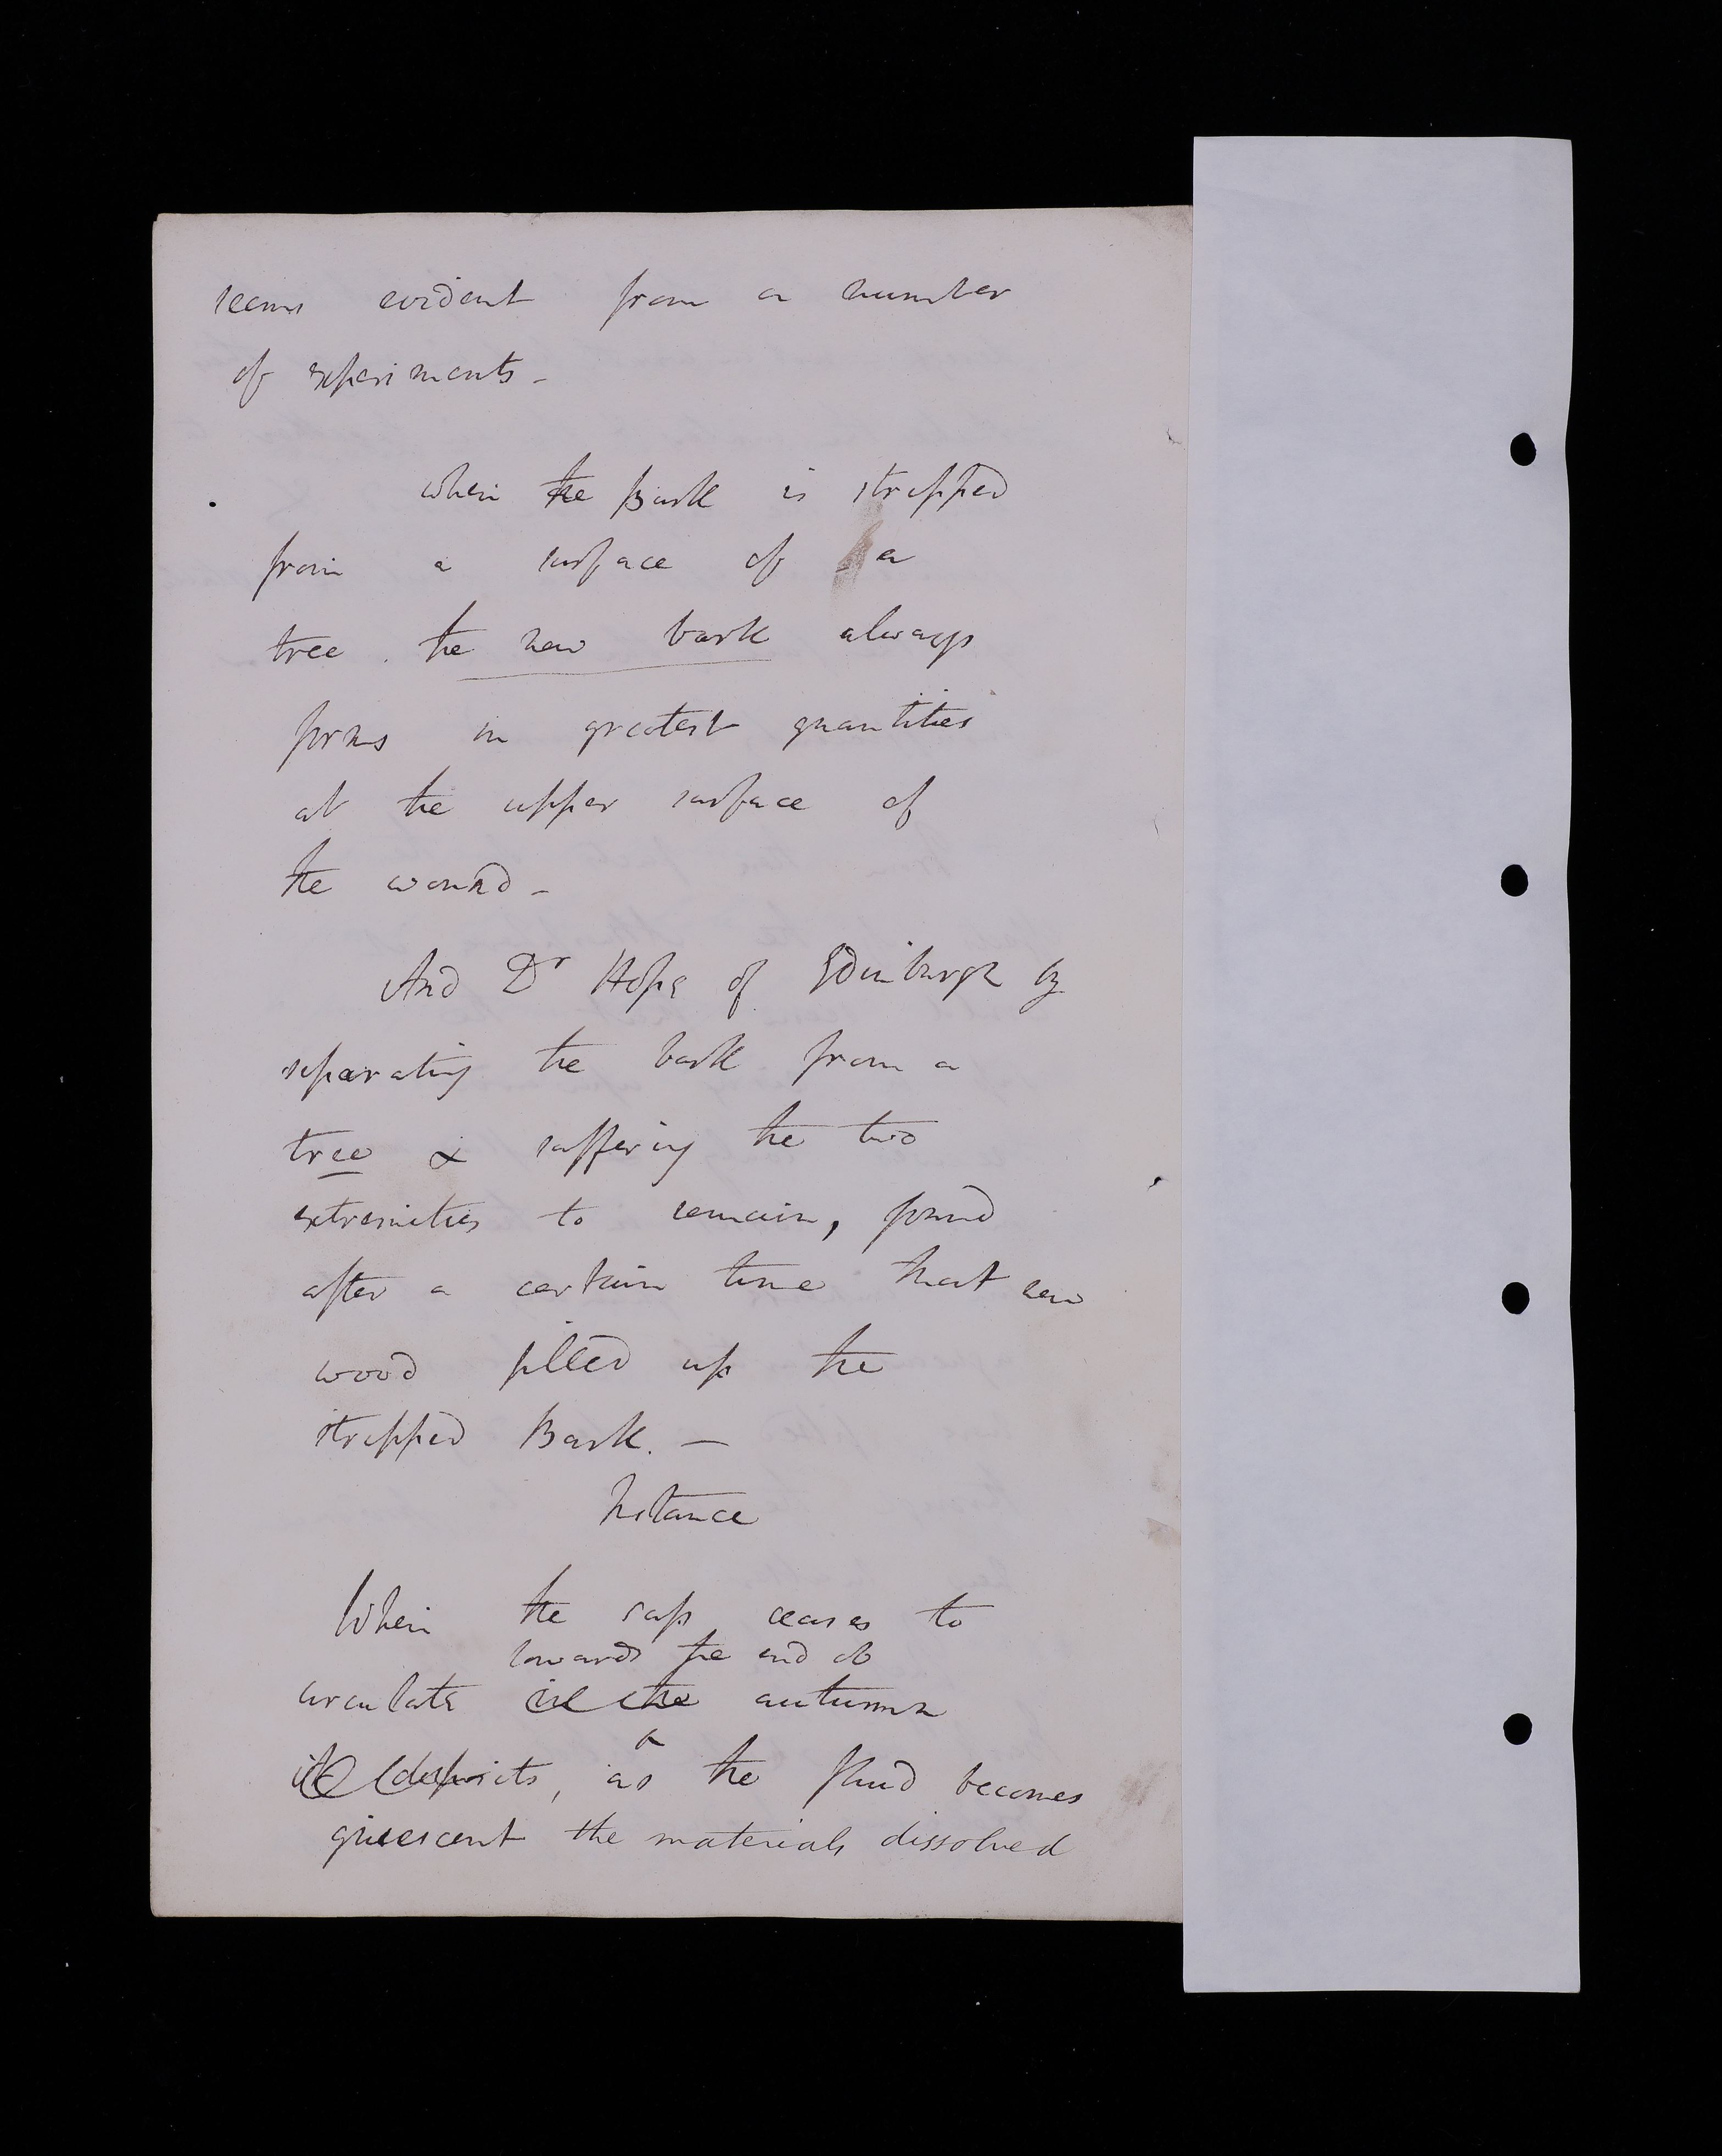 seems evident from a number
of experiments -
when the Bark is stripped
from a surface of a
tree. the new bark always
forms in greatest quantities
at the upper surface of
the wound -
And Dr Hope of Edinburgh by
separating the bark from a
tree & suffering the two
extremities to remain, found
after a certain time that new
wood filled up the
stripped Bark. -
Instance
When the sap ceases to
towards the end of
circulate in the autumn
it deposits, as the fluid becomes
quiescent the materials dissolved